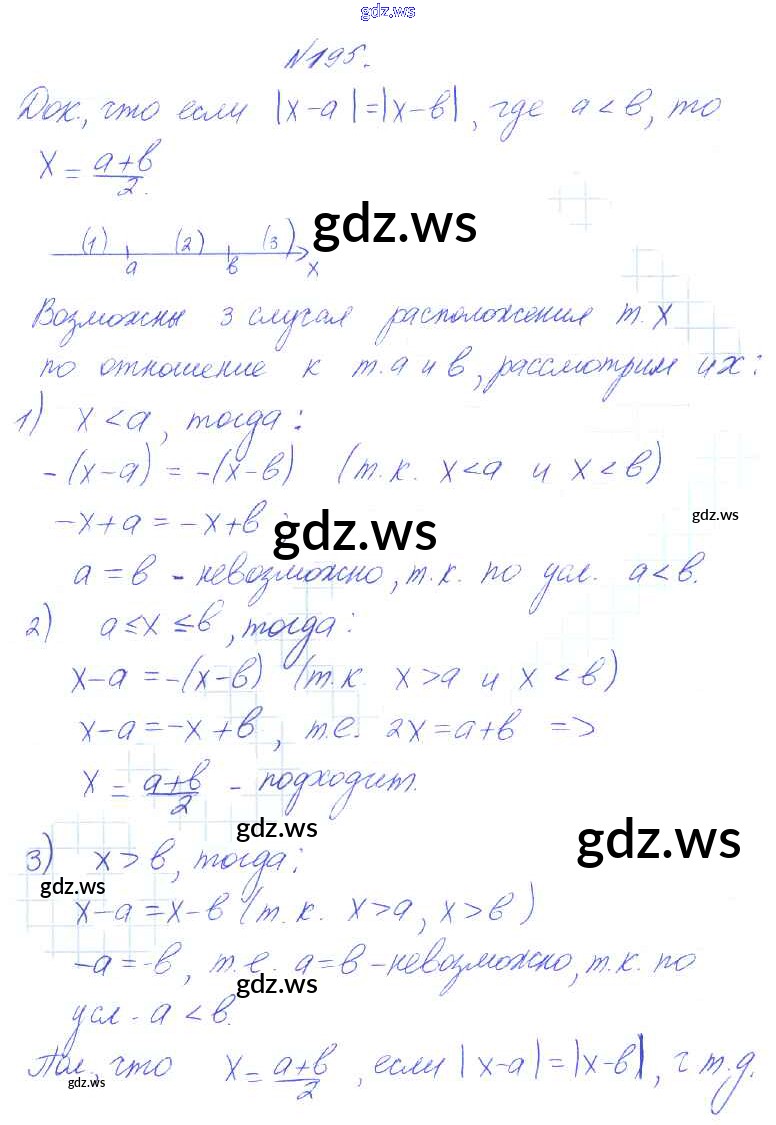 gdz.ws
N195.
Док., что если |x-a|=|x-b|, где a<b, то
x = \frac{a+b}{2}.
gdz.ws
(1) (2) (3)
a b x
Возможны 3 случая расположения т. x
по отношение к т. a и b, рассмотрим их:
1) x<a, тогда:
-(x-a) = -(x-b) (т.к. x<a и x<b)
gdz.ws
-x+a = -x+b;
gdz.ws
a = b - невозможно, т.к. по усл. a<b.
2) a≤x≤b, тогда:
x-a = -(x-b) (т.к. x>a и x<b)
x-a = -x+b, т.е. 2x=a+b =>
x = \frac{a+b}{2} - подходит.
gdz.ws
gdz.ws
3) x>b, тогда:
gdz.ws
x-a = x-b (т.к. x>a, x>b)
-a = -b, т.е. a=b - невозможно, т.к. по
gdz.ws
усл - a<b.
Пол., что x = \frac{a+b}{2}, если |x-a|=|x-b|, ч.т.д.
gdz.ws